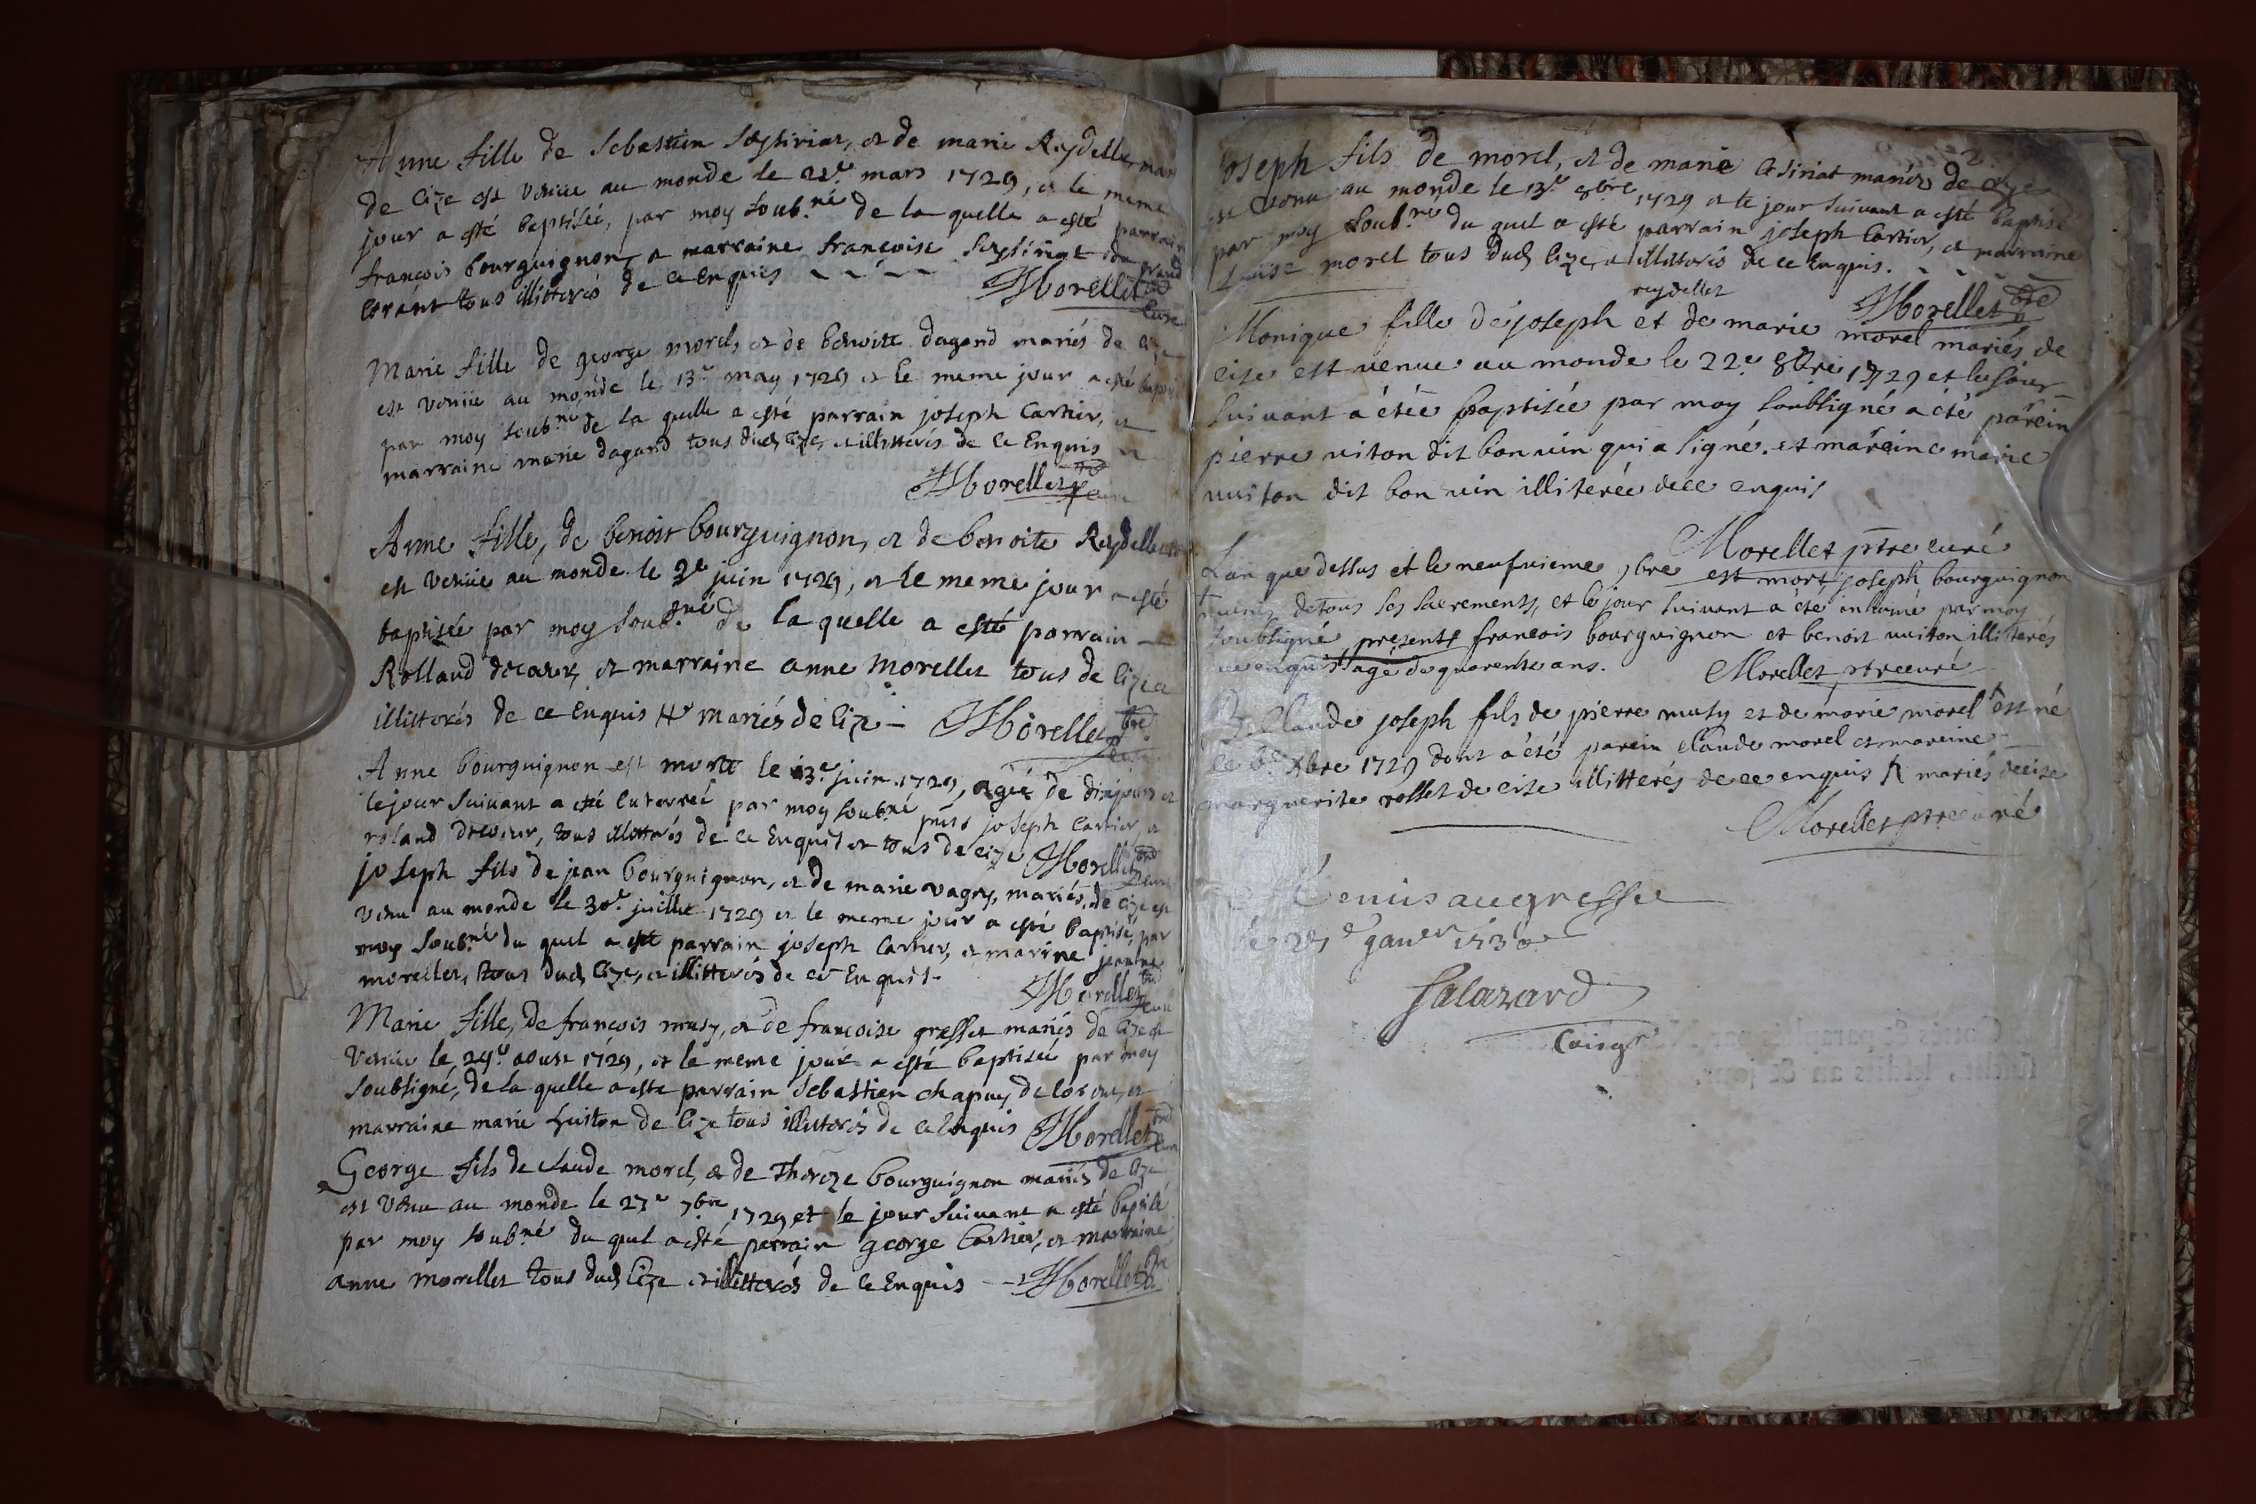 Anne fille de Sebastien Seysiriat, et de marie Reydellet mar
de Cize est venüe au monde le 22e mars 1729, et le meme
jour a esté baptisée, par moy soub.né de la quelle a esté parrain
francois bourguignon, et marraine francoise Seysiriat du grand
Corent tous illitterés de ce Enquis
JMorellet ptre Curé
Marie fille de george morel, et de benoitte dagand mariés de Cize
est venüe au monde le 13e may 1729 et le meme jour a esté baptis
par moy soub.né de la quelle a esté parrain joseph Cartier, et
marraine marie dagand tous dud. Cize, et illitterés de ce Enquis
JMorellet ptre Curé
Anne fille, de benoit bourguignon, et de benoite Reydellet
est venüe au monde le 2e juin 1729, et le meme jour a esté
baptisée par moy soub.né de la quelle a esté parrain
Rolland decoeur, et marraine anne Morellet tous de Cize et
illitterés de ce Enquis # mariés de Cize
JMorellet ptre Curé
Anne bourguignon est morte le 13e juin 1729, agée de dix jours et
le jour suivant a esté enterreé par moy soub.né pnts joseph Cartier, et
roland decoeur, tous illitterés de ce Enquis et tous de cize JMorellet ptre Curé
joseph fils de jean bourguignon, et de marie vagny, mariés, de Cize est
venu au monde le 30e juillet 1729 et le meme jour a esté baptisé, par
moy soub.né du quel a esté parrain joseph Cartier, et marine jeanne
morellet, tous dud. Cize, et illitterés de ce Enquis.
JMorellet ptre Curé
Marie fille, de francois musy, et de francoise gresset mariés de Cize est
venüe le 29e aoust 1729, et le meme jour a esté baptisée par moy
soubsigné, de la quelle a este parrain Sebastien chapuy de et
marraine marie huiton de Cize tous illitterés de ce Enquis JMorellet ptre Curé
George fils de claude morel, et de Thereze bourguignon mariés de Cize
est venu au monde le 27e 7bre 1729 et le jour suivant a esté baptisé
par moy soub.né du quel a esté parrain george Cartier, et marraine
anne morellet tous dud. Cize et illitterés de ce Enquis JMorellet ptre
joseph fils de morel, et de marie Cesiriat mariés de cize
est venu au monde le 13e 8bre 1729 et le jour suivant a esté baptisé
par moy soub.né du quel a esté parrain joseph Cartier, et marraine
Louise morel tous dud. Cize, et illitterés de ce Enquis.
JMorellet ptre
reydellet
Monique fille de joseph et de marie morel mariés de
cise est venue au monde le 22e 8bre 1729 et le jour
suivant a étée baptisée par moy soubsigné a été parein
pierre uiton dit bon uin qui a signé. et mareine marie
uuiton dit bon uin illiterée de ce enquis
Morellet ptre curé
L'an que dessus et le neufuieme 9bre est mort joseph bourguignon
munis de tous ses sacrements, et le jour suivant a été inhumé par moy
soubsigné presents francois bourguignon et benoit uuiton illiterés
de ce enquis agé de quarente ans. Morellet ptre curé
Claude joseph fils de pierre musy et de marie morel # est né
le 6e Xbre 1729 dont a été parein claude morel et mareine
marguerite rosset de cise illitterés de ce enquis # mariés de cise
Morellet ptre curé
Remis au greffe
le 28e ganer 1730
Salazard
Coings